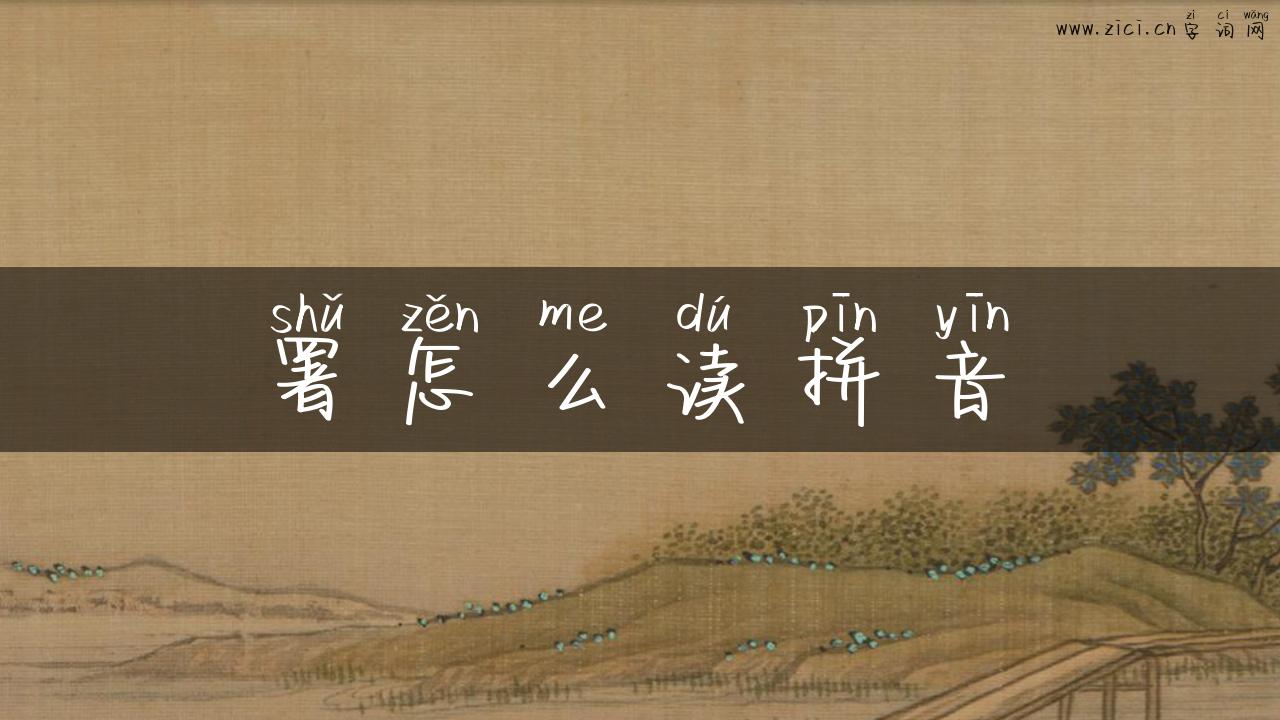 zì cí wǎng
www.zici.cn字词网
shǔ zěn me dú pīn yīn
署怎么读拼音